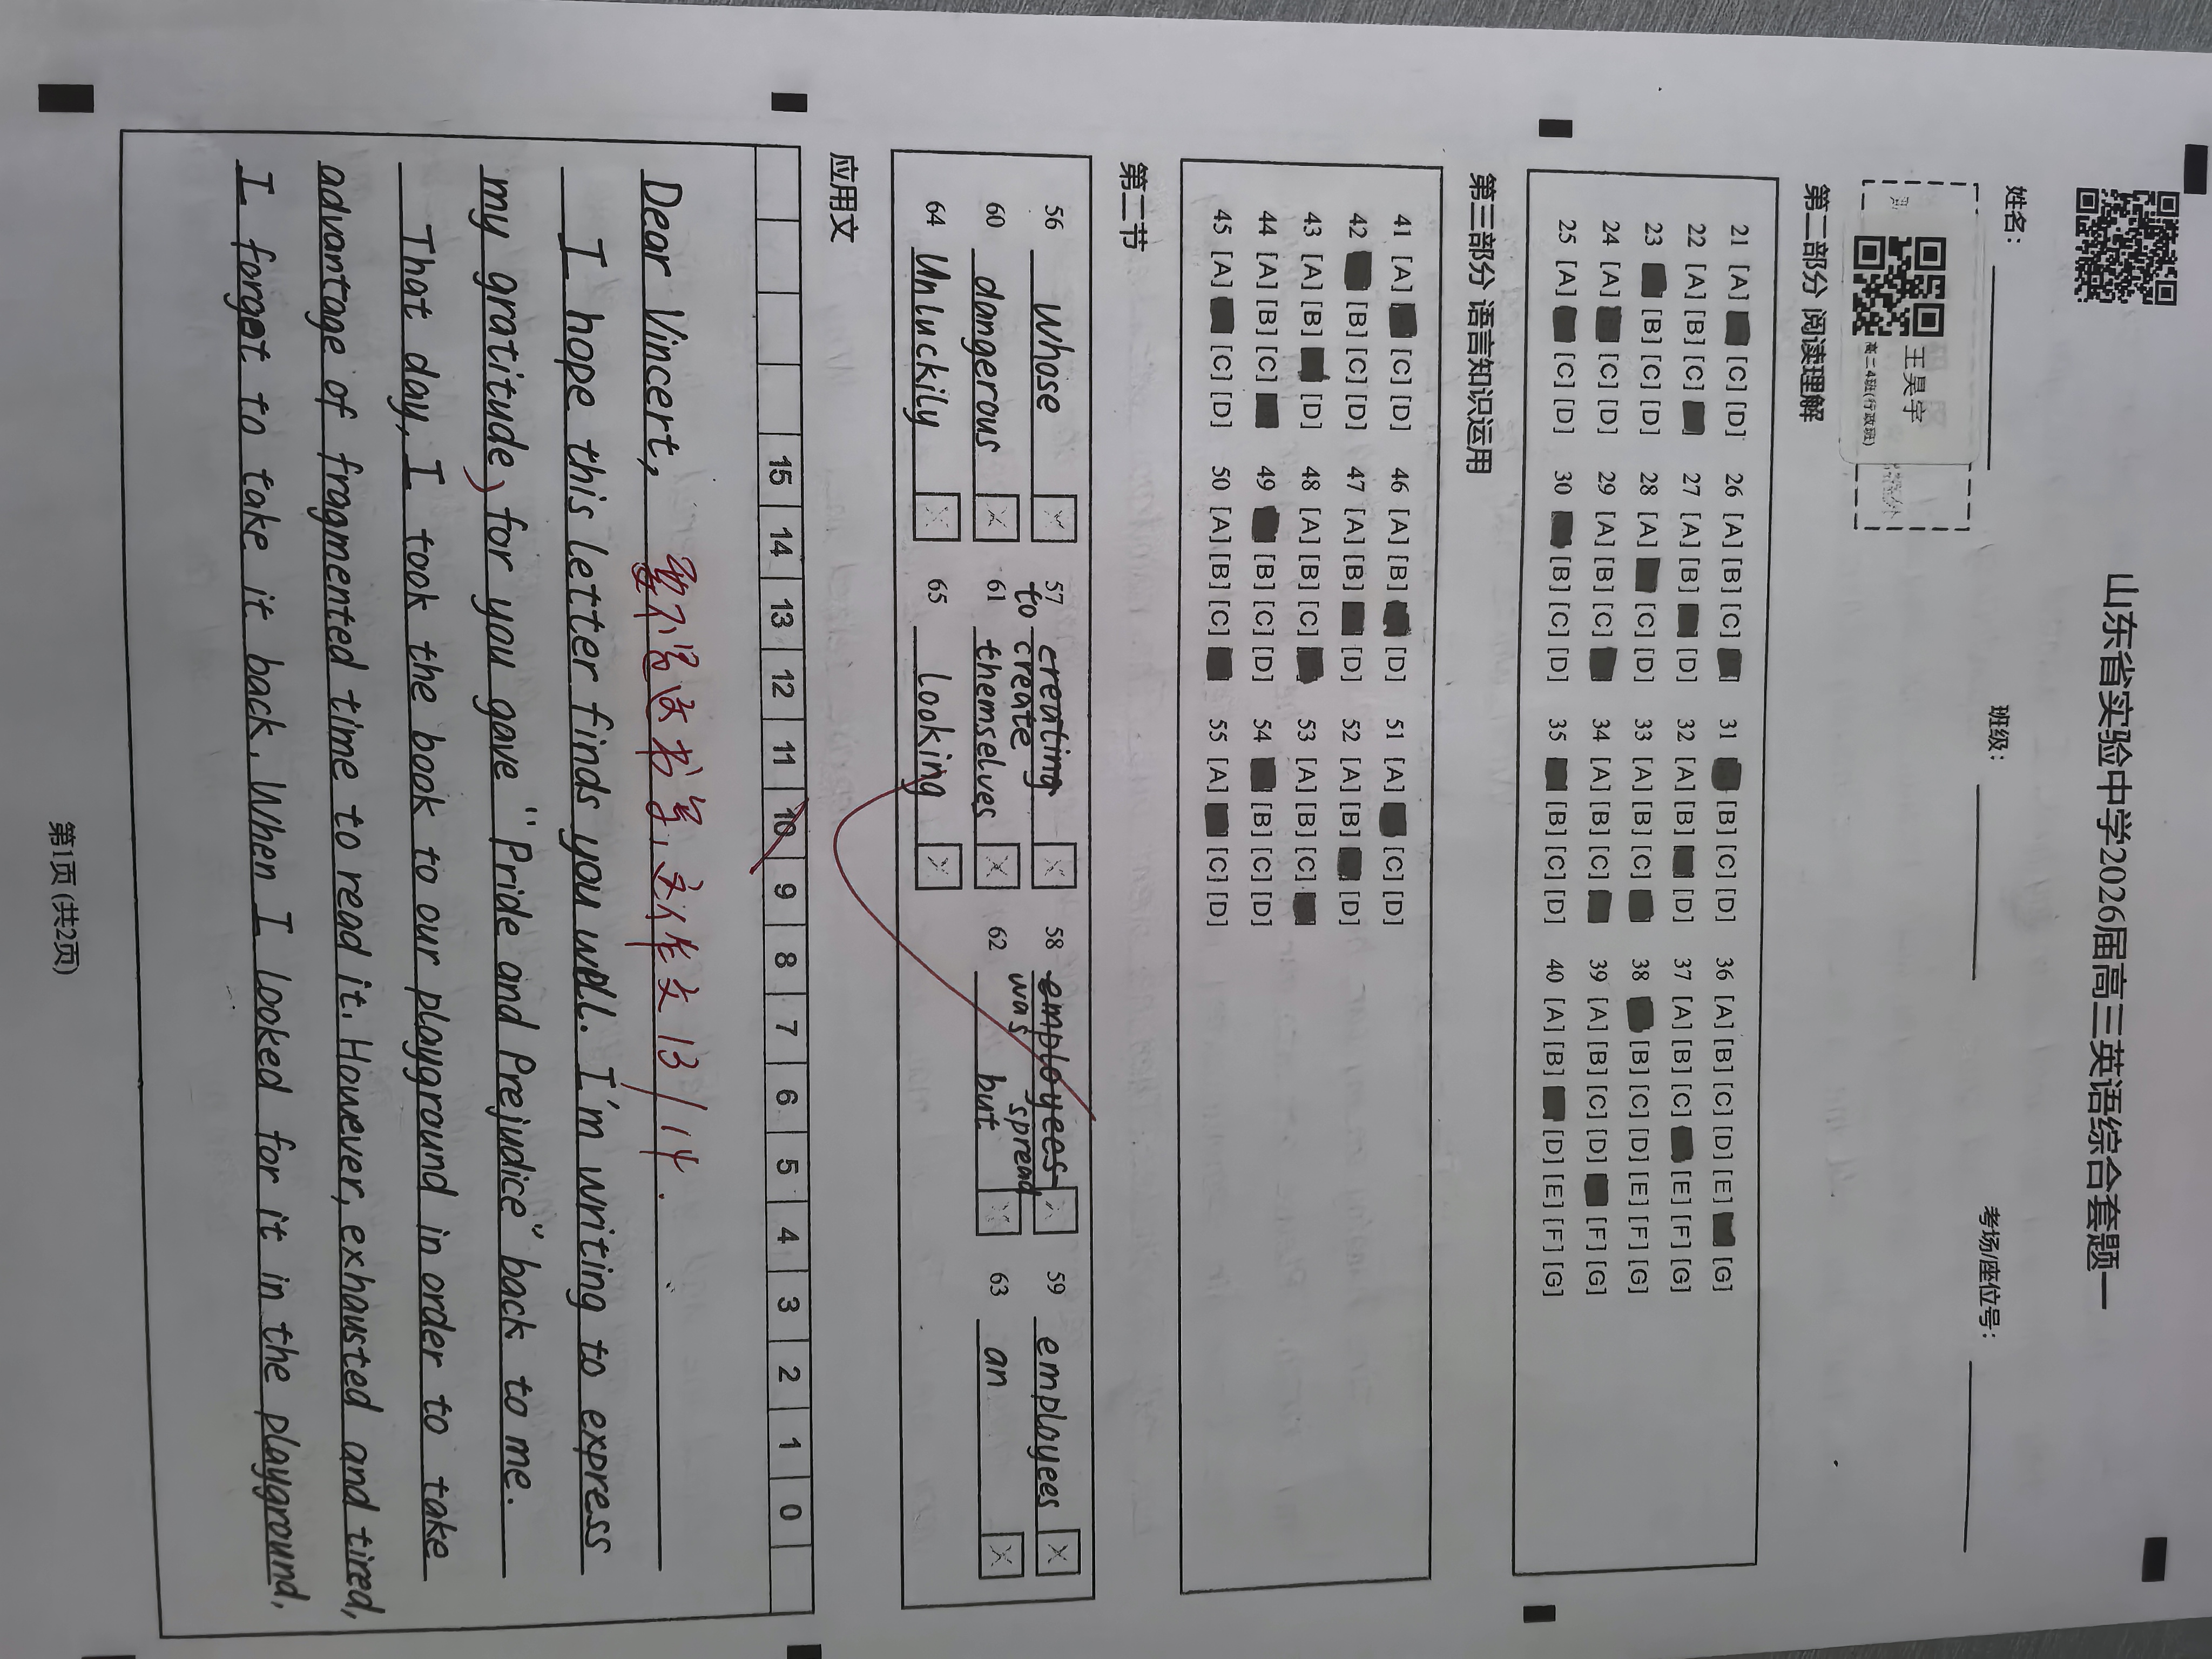 山东省实验中学2026届高三英语综合套题一
姓名：
班级：
考场/座位号：
王昊宇
高二4班(行政班)
第二部分 阅读理解
21 [A] [C] [D] 26 [A] [B] [C] 31 [B] [C] [D] 36 [A] [B] [C] [D] [E] [G]
22 [A] [B] [C] 27 [A] [B] [D] 32 [A] [B] [D] 37 [A] [B] [C] [E] [F] [G]
23 [B] [C] [D] 28 [A] [C] [D] 33 [A] [B] [C] 38 [B] [C] [D] [E] [F] [G]
24 [A] [C] [D] 29 [A] [B] [C] 34 [A] [B] [C] 39 [A] [B] [C] [D] [F] [G]
25 [A] [C] [D] 30 [B] [C] [D] 35 [B] [C] [D] 40 [A] [B] [D] [E] [F] [G]
第三部分 语言知识运用
41 [A] [C] [D] 46 [A] [B] [D] 51 [A] [C] [D]
42 [B] [C] [D] 47 [A] [B] [D] 52 [A] [B] [D]
43 [A] [B] [D] 48 [A] [B] [C] 53 [A] [B] [C]
44 [A] [B] [C] 49 [B] [C] [D] 54 [B] [C] [D]
45 [A] [C] [D] 50 [A] [B] [C] 55 [A] [C] [D]
第二节
56 whose 57 creating to create 58 employees was spread 59 employees
60 dangerous 61 themselves 62 but 63 an
64 Unluckily 65 looking
应用文
15 14 13 12 11 10 9 8 7 6 5 4 3 2 1 0
Dear Vincert,
13/14.
I hope this letter finds you well. I'm writing to express
my gratitude for you gave "Pride and Prejudice" back to me.
That day, I took the book to our playground in order to take
advantage of fragmented time to read it. However, exhausted and tired,
I forget to take it back. When I looked for it in the playground,
第1页(共2页)